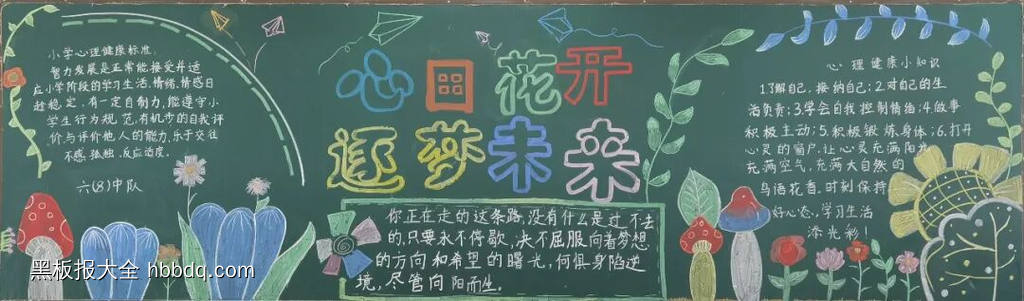 小学心理健康标准
智力发展是正常能接受并适
应小学阶段的学习生活,情绪、情感日
趋稳定,有一定自制力,能遵守小
学生行为规范,有机步的自我评
价与评价他人的能力,乐于交往
不感孤独,反应适度。
六(8)中队
心日花开
逐梦未来
你正在走的这条路,没有什么是过不去
的,只要永不停歇,决不屈服向着梦想
的方向和希望的曙光,何惧身陷逆
境,尽管向阳而生。
心理健康小知识
1了解自己,接纳自己;2对自己的生
活负责;3.学会自我控制情绪;4.做事
积极主动;5.积极锻炼身体;6.打开
心灵的窗户,让心灵充满阳光
充满空气,充满大自然的
鸟语花香。时刻保持
好心态,学习生活
添光彩!
黑板报大全 hbbdq.com